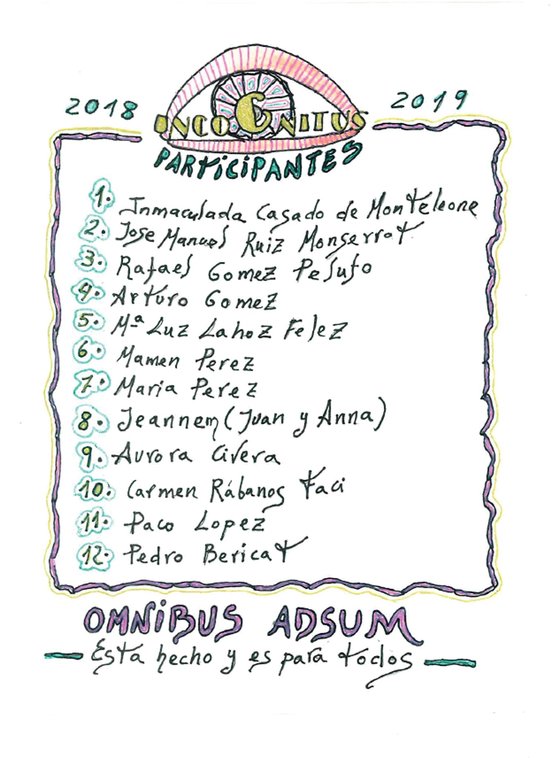 2018 INCOGNITUS 2019
PARTICIPANTES
1. Inmaculada Casado de Monteleone
2. Jose Manuel Ruiz Monserrat
3. Rafael Gomez Pesufo
4. Arturo Gomez
5. Mª Luz Lahoz Felez
6. Mamen Perez
7. Maria Perez
8. Jeannem (Juan y Anna)
9. Aurora Civera
10. Carmen Rábanos Faci
11. Paco Lopez
12. Pedro Bericat
OMNIBUS ADSUM
Esta hecho y es para todos